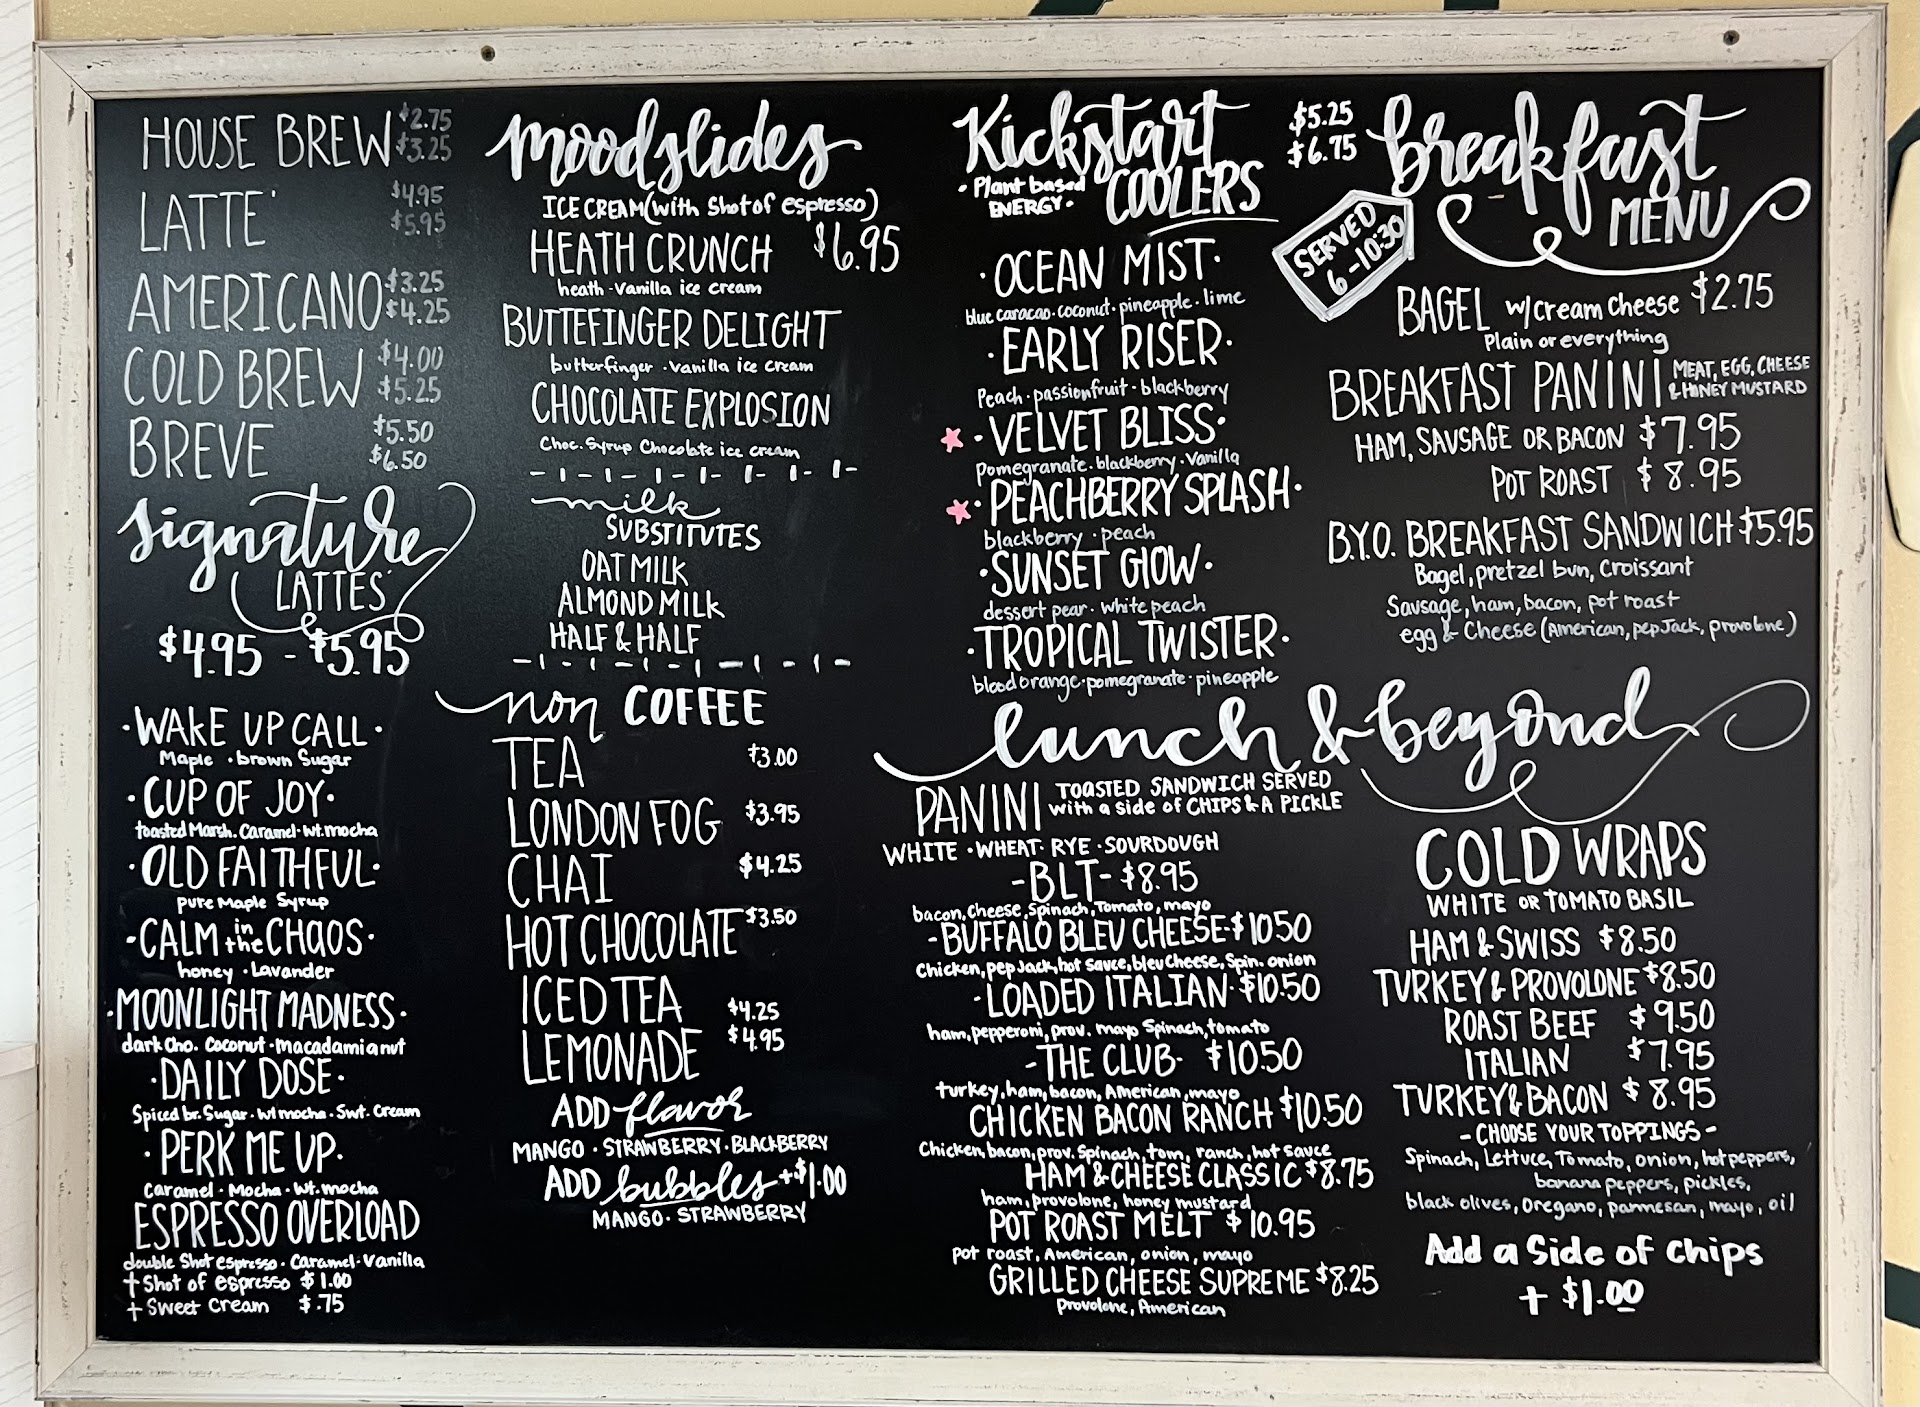 HOUSE BREW $2.75
$3.25
LATTE' $4.95
$5.95
AMERICANO $3.25
$4.25
COLD BREW $4.00
$5.25
BREVE $5.50
$6.50
Signature
LATTES'
$4.95 - $5.95
·WAKE UP CALL·
Maple · brown Sugar
·CUP OF JOY·
toasted Marsh. Caramel· Wt. mocha
·OLD FAITHFUL·
pure Maple Syrup
·CALM in the CHAOS·
honey · Lavander
·MOONLIGHT MADNESS·
dark Cho. Coconut · macadamia nut
·DAILY DOSE·
Spiced br. Sugar · Wt mocha · Swt. Cream
·PERK ME UP·
Caramel · Mocha · Wt. mocha
ESPRESSO OVERLOAD
double Shot espresso · Caramel · Vanilla
+ Shot of espresso $1.00
+ Sweet Cream $.75
moodslides
ICE CREAM (with Shot of espresso)
HEATH CRUNCH $6.95
heath · Vanilla ice cream
BUTTEFINGER DELIGHT
butterfinger · Vanilla ice cream
CHOCOLATE EXPLOSION
Choc. Syrup Chocolate ice cream
milk
SUBSTITUTES
OAT MILK
ALMOND MILK
HALF & HALF
non COFFEE
TEA $3.00
LONDON FOG $3.95
CHAI $4.25
HOT CHOCOLATE $3.50
ICED TEA $4.25
LEMONADE $4.95
ADD flavor
MANGO · STRAWBERRY · BLACKBERRY
ADD bubbles +$1.00
MANGO · STRAWBERRY
Kickstart $5.25
$6.75
· Plant based
ENERGY ·
COOLERS
·OCEAN MIST·
blue caracao · coconut · pineapple · lime
·EARLY RISER·
Peach · passionfruit · blackberry
·VELVET BLISS·
pomegranate · blackberry · Vanilla
·PEACHBERRY SPLASH·
blackberry · peach
·SUNSET GlOW·
dessert pear · white peach
·TROPICAL TWISTER·
blood orange · pomegranate · pineapple
breakfast
MENU
SERVED
6-10:30
BAGEL w/cream cheese $2.75
Plain or everything
BREAKFAST PANINI MEAT, EGG, CHEESE
& HONEY MUSTARD
HAM, SAUSAGE OR BACON $7.95
POT ROAST $8.95
B.Y.O. BREAKFAST SANDWICH $5.95
Bagel, pretzel bun, Croissant
Sausage, ham, bacon, pot roast
egg & Cheese (American, pep Jack, provolone)
lunch & beyond
PANINI TOASTED SANDWICH SERVED
with a side of CHIPS & A PICKLE
WHITE · WHEAT · RYE · SOURDOUGH
-BLT- $8.95
bacon, Cheese, Spinach, Tomato, mayo
-BUFFALO BLEU CHEESE- $10.50
Chicken, pep Jack, hot sauce, bleu Cheese, Spin. onion
-LOADED ITALIAN- $10.50
ham, pepperoni, prov. mayo Spinach, tomato
-THE CLUB- $10.50
turkey, ham, bacon, American, mayo
CHICKEN BACON RANCH $10.50
Chicken, bacon, prov. Spinach, tom, ranch, hot sauce
HAM & CHEESE CLASSIC $8.75
ham, provolone, honey mustard
POT ROAST MELT $10.95
pot roast, American, onion, mayo
GRILLED CHEESE SUPREME $8.25
Provolone, American
COLD WRAPS
WHITE OR TOMATO BASIL
HAM & SWISS $8.50
TURKEY & PROVOLONE $8.50
ROAST BEEF $9.50
ITALIAN $7.95
TURKEY & BACON $8.95
- CHOOSE YOUR TOPPINGS -
Spinach, Lettuce, Tomato, onion, hot peppers,
banana peppers, pickles,
black olives, Oregano, parmesan, mayo, oil
Add a Side of Chips
+ $1.00